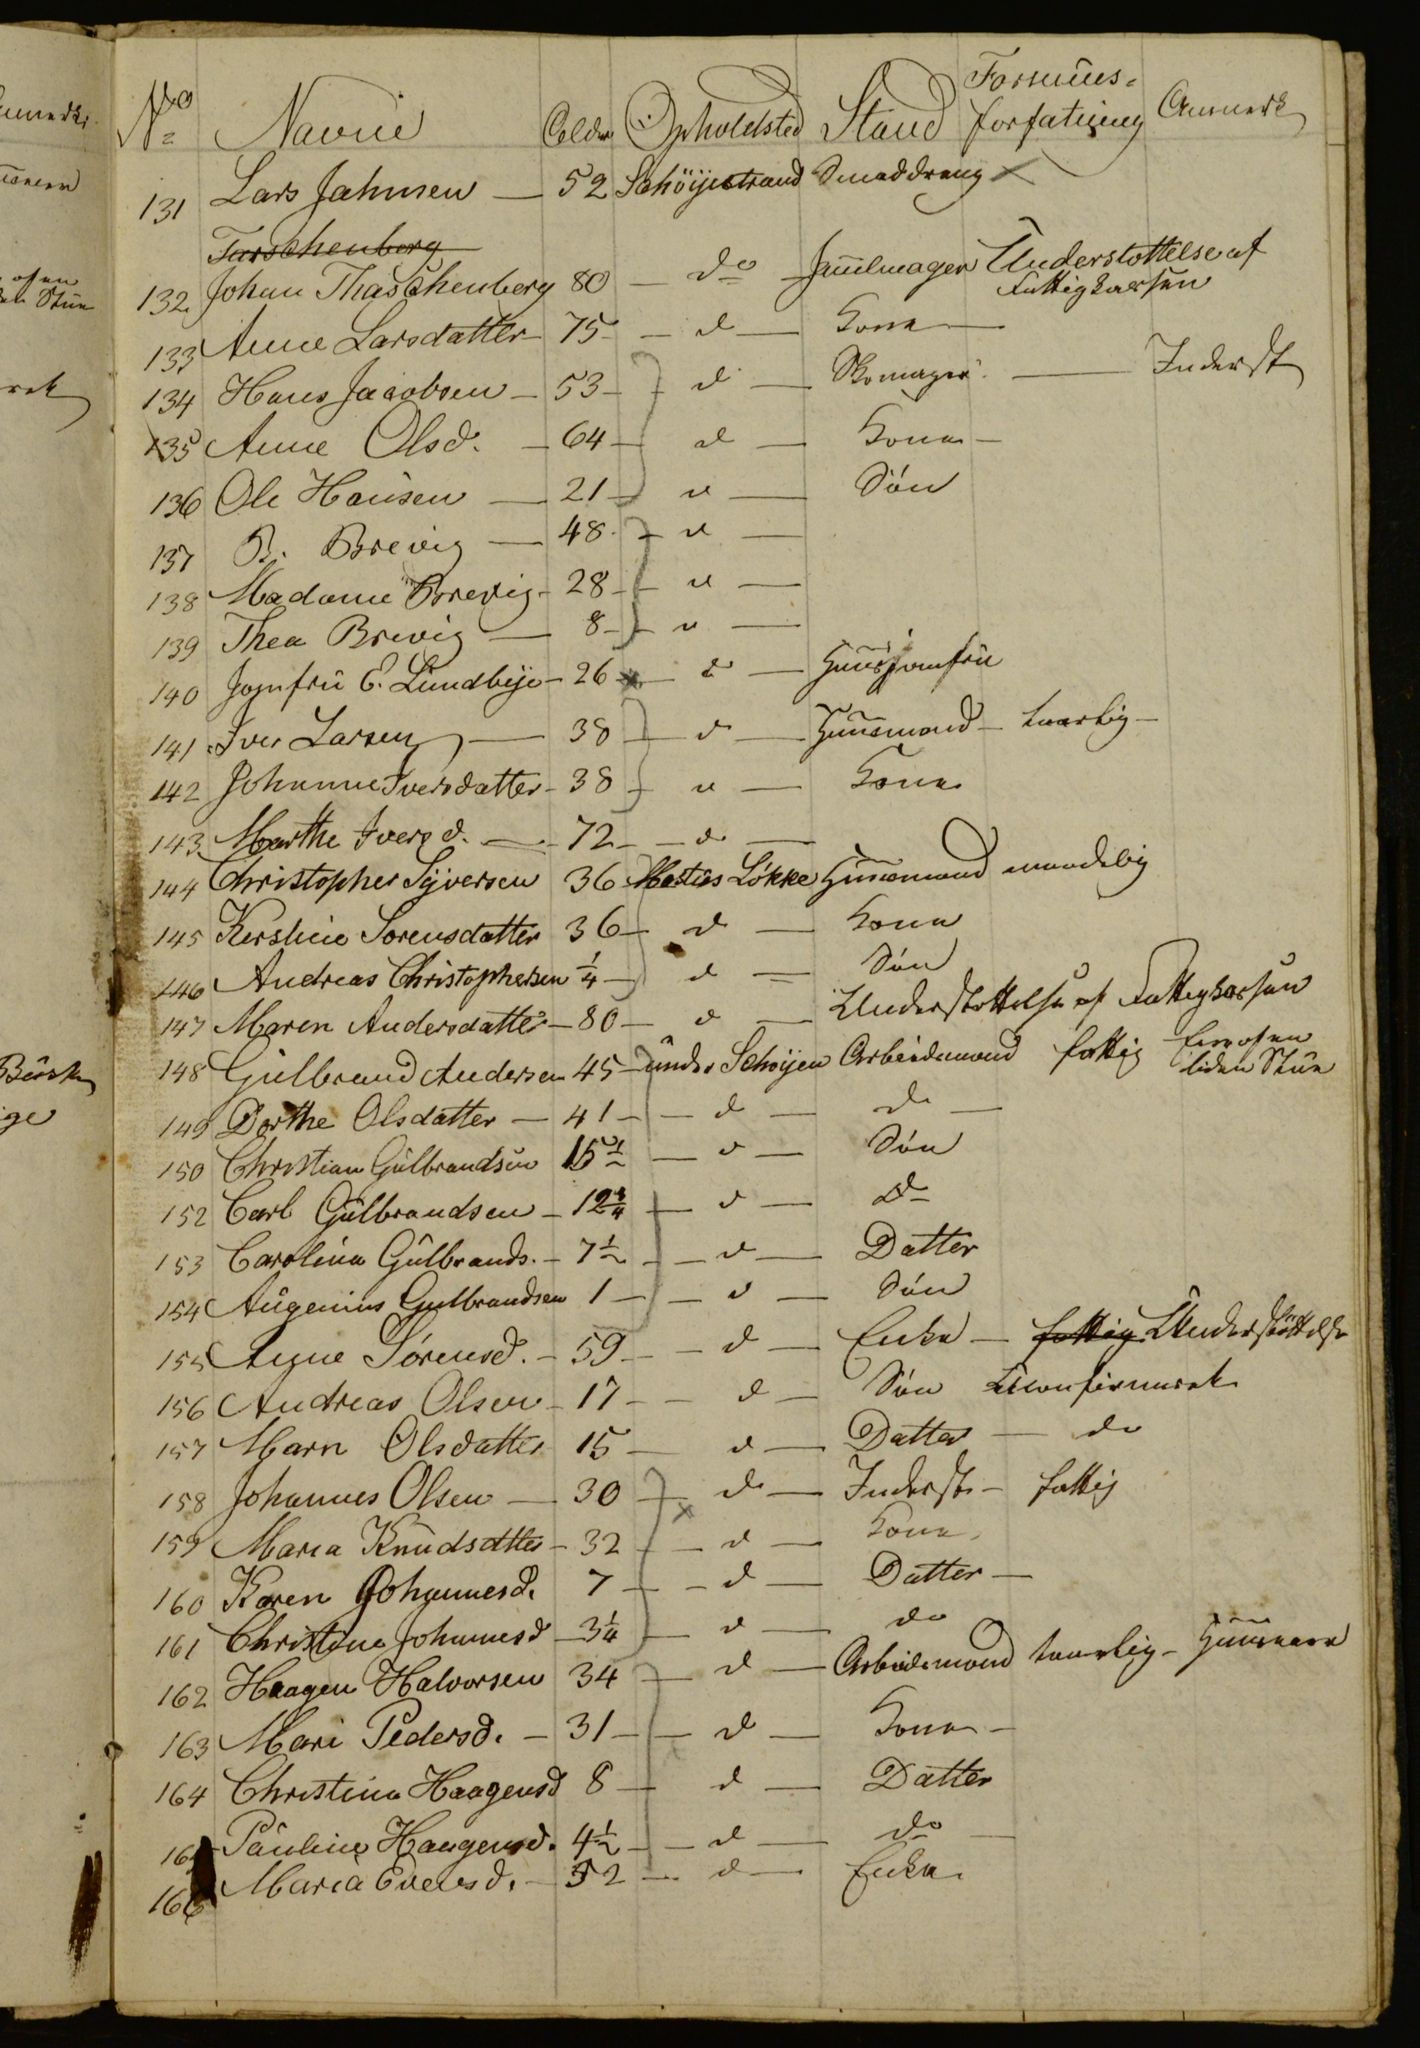 No Navne Alder Opholdsted Stand Formues-
forfatning Anmerk
131 Lars Jahnsen — 52 Schöijestrand Smeddreng
Tarschenberg
132 Johan Thaschenberg 80 — do Juulmager Understottelse af
Fattigkassen
133 Anne Larsdatter — 75 — d — Kone —
134 Hans Jacobsen — 53 — d — Skomager — Inderst
135 Anne Olsd. — 64 — d — Kone —
136 Ole Hansen — 21 — d — Sön
137 B. Brevig — 48 — d —
138 Madame Brevig — 28 — d —
139 Thea Brevig — 8 — d —
140 Jomfrú E. Lúndbije — 26 — d — Húúsjomfrú
141 Iver Larsen — 38 — d — Húúsmand — taarlig —
142 Johanne Iversdatter — 38 — d — Kone
143 Marthe Iversd. — 72 — d —
144 Christopher Sÿversen 36 Løkke Húúsmand maadelig
145 Kerstine Sorensdatter 36 — d — Kone
146 Andreas Christophersen 1/4 — d — Sön
147 Maren Andersdatter — 80 — d — Understottelse af Fattigkassen
148 Gúlbrand Andersen 45 — únder Schöijen Arbeidsmand fattig
liden Stúe
149 Dorthe Olsdatter — 41 — d — do —
150 Christian Gúlbrandsen 15 1/2 — d — Sön
152 Carl Gúlbrandsen — 12 3/4 — d — do
153 Carolina Gúlbrands. — 7 1/2 — d — Datter
154 Aúgenius Gúlbrandsen 1 — d — Sön
155 Anne Sörensd. — 59 — d — Enke — fattig Understöttelse
156 Andreas Olsen — 17 — d — Sön Uconfirmeret
157 Marn Olsdatter 15 — d — Datter — do
158 Johannes Olsen — 30 — d — Inderst — fattig
159 Maria Knúdsdtter — 32 — d — Kone
160 Karen Johannesd. 7 — d — Datter —
161 Christine Johannesd — 3 1/4 — d — do
162 Haagen Halvorsen 34 — d — Arbeidsmand taarlig — Húúsmand
163 Mari Pedersd. — 31 — d — Kone —
164 Christina Haagensd 8 — d — Datter
165 Paúline Haagensd. 4 1/2 — d — do —
166 Maria Evensd. — 52 — d — Enke